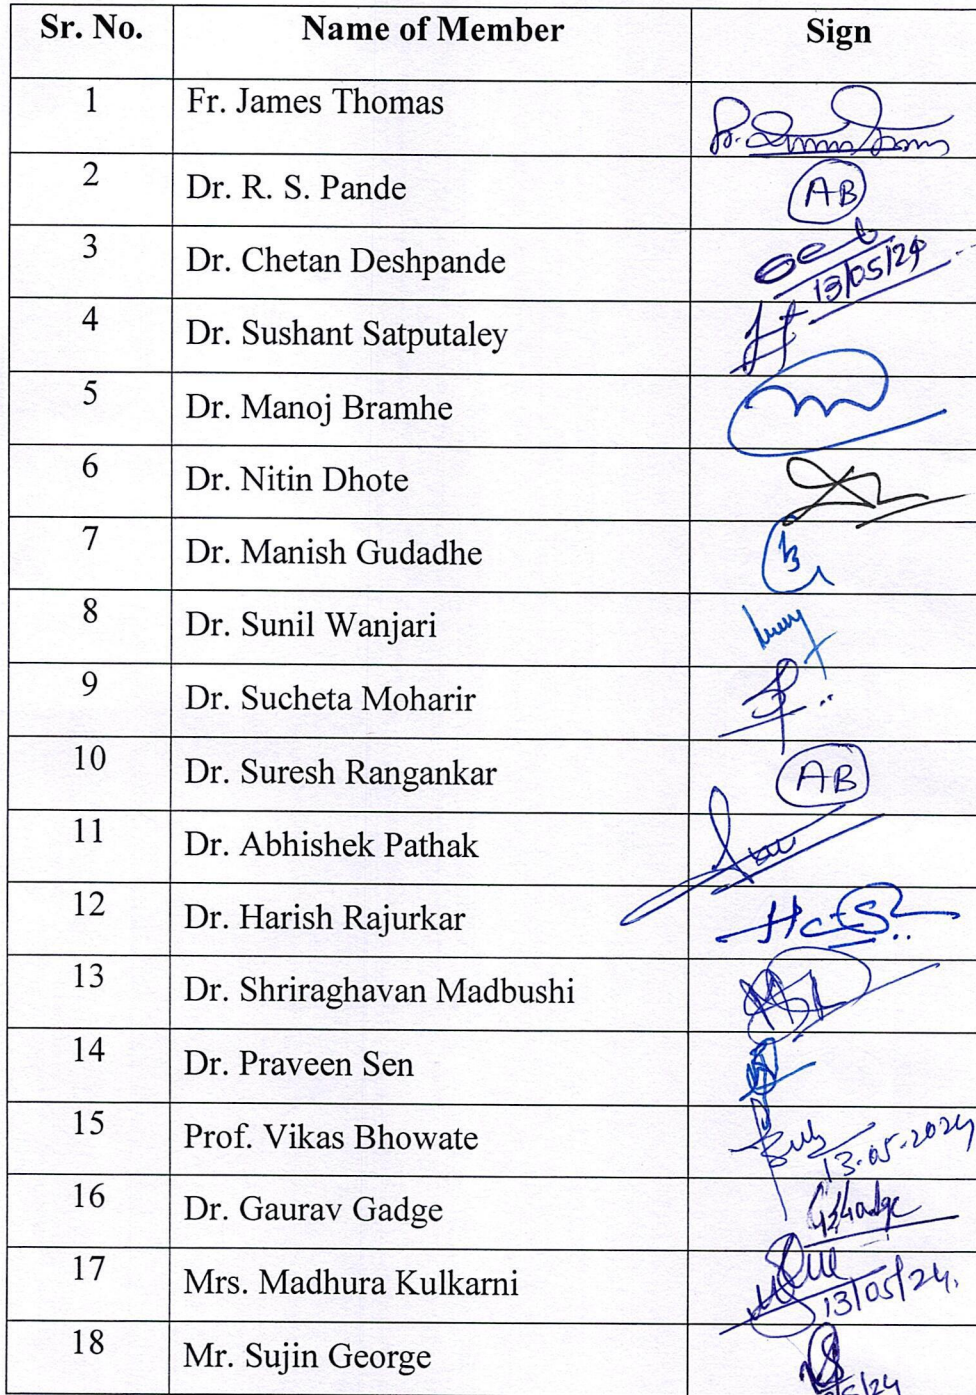 Sr. No. Name of Member Sign
1 Fr. James Thomas
2 Dr. R. S. Pande AB
3 Dr. Chetan Deshpande 13/05/24
4 Dr. Sushant Satputaley
5 Dr. Manoj Bramhe
6 Dr. Nitin Dhote
7 Dr. Manish Gudadhe
8 Dr. Sunil Wanjari
9 Dr. Sucheta Moharir
10 Dr. Suresh Rangankar AB
11 Dr. Abhishek Pathak
12 Dr. Harish Rajurkar
13 Dr. Shriraghavan Madbushi
14 Dr. Praveen Sen
15 Prof. Vikas Bhowate 13-05-2024
16 Dr. Gaurav Gadge
17 Mrs. Madhura Kulkarni 13/05/24.
18 Mr. Sujin George